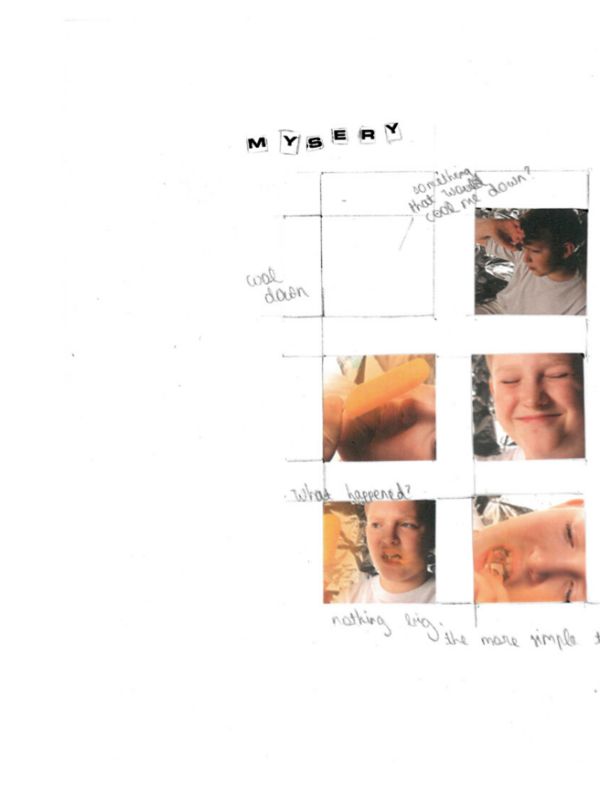 MYSERY
something
that would
cool me down?
cool
down
What happened?
nothing big.
the more simple t